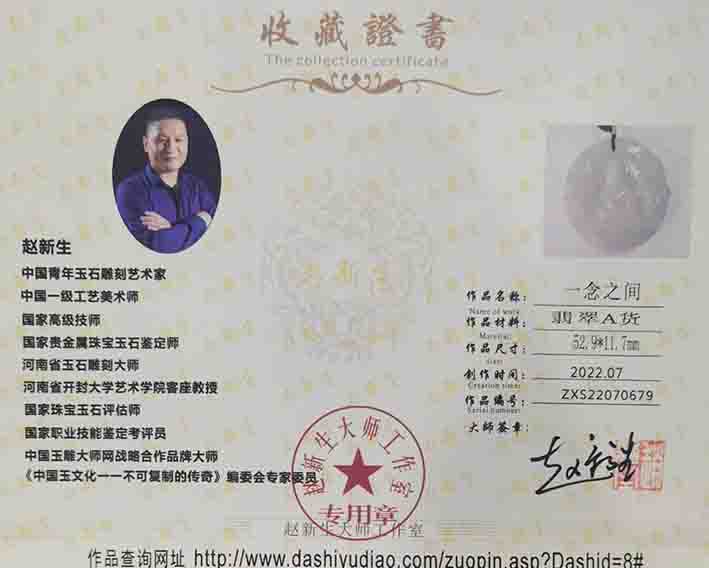 收藏證書
The collection certificate
赵新生
中国青年玉石雕刻艺术家
中国一级工艺美术师
国家高级技师
国家贵金属珠宝玉石鉴定师
河南省玉石雕刻大师
河南省开封大学艺术学院客座教授
国家珠宝玉石评估师
国家职业技能鉴定考评员
中国玉雕大师网战略合作品牌大师
《中国玉文化一一不可复制的传奇》编委会专家委员
赵新生
作品名称: 一念之间
Name of work
作品材料: 翡翠A货
Material:
作品尺寸: 52.9*11.7mm
size:
创作时间: 2022.07
Creation time:
作品编号: ZXS22070679
Serial number:
大师签章:
赵新生
赵新生大师工作室
专用章
赵新生大师工作室
作品查询网址 http://www.dashiyudiao.com/zuopin.asp?Dashid=8#